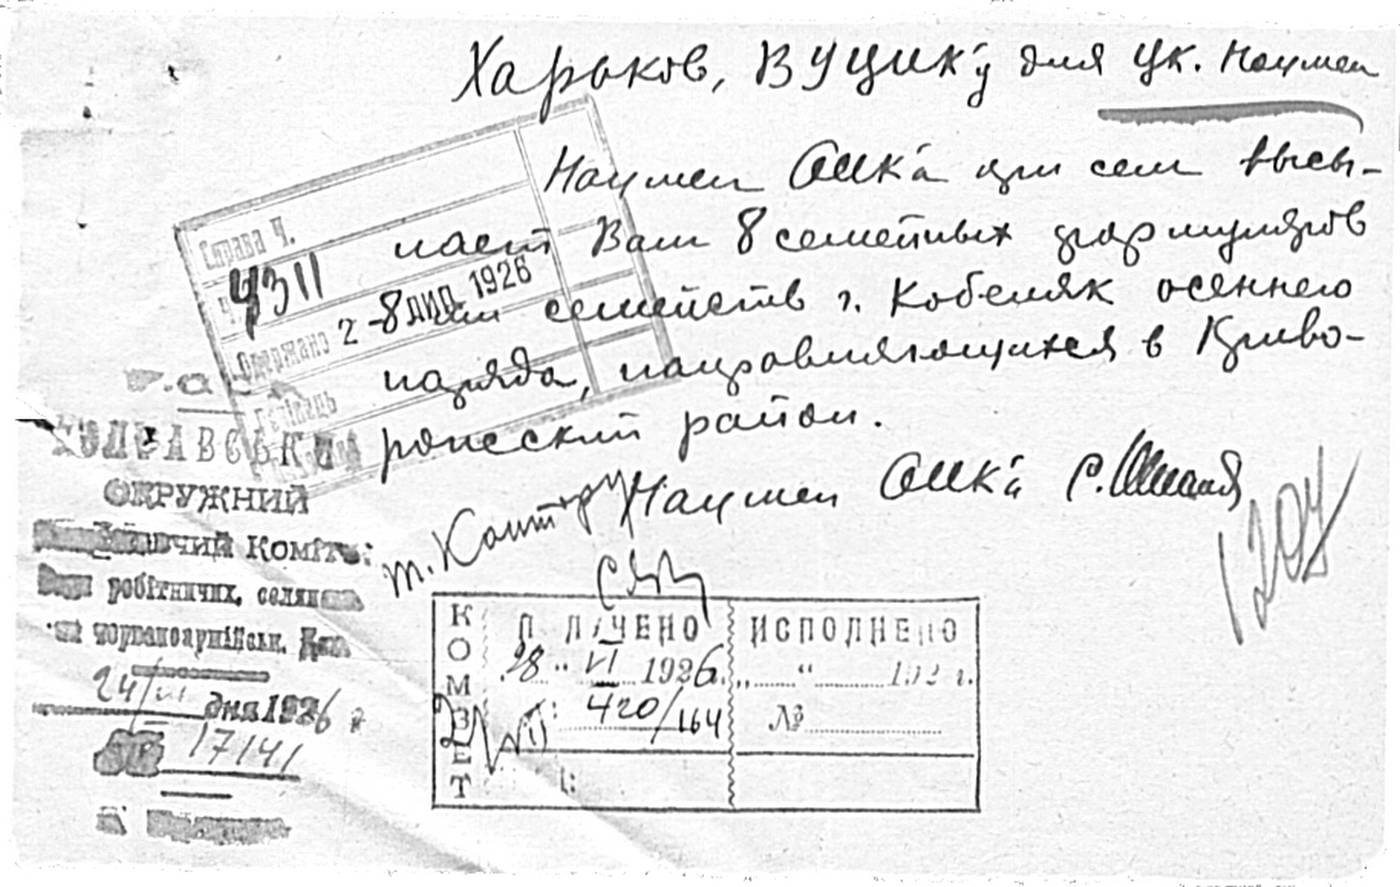 Харьков, ВУЦИК'у для Ук. Наумен
Наумен ОИК'а при сем высы-
лает Вам 8 семейных формуляров
семейств г. Кобеляк осеннего
наряда, направляющихся в Криво-
рожский район.
Наумен ОИК'а С.
Справа Ч.
4311
Одержано 2 -8 ЛИП. 1926
ПОЛТАВСЬКИЙ
ОКРУЖНИЙ
Комітет
робітничих, селянськ
червоноармійськ. Деп
24/VI дня 1926 р
17141
1204
КОМЗЕТ
ПОЛУЧЕНО
28 " VI 1926г.
420/164
ИСПОЛНЕНО
" " 192 г.
№